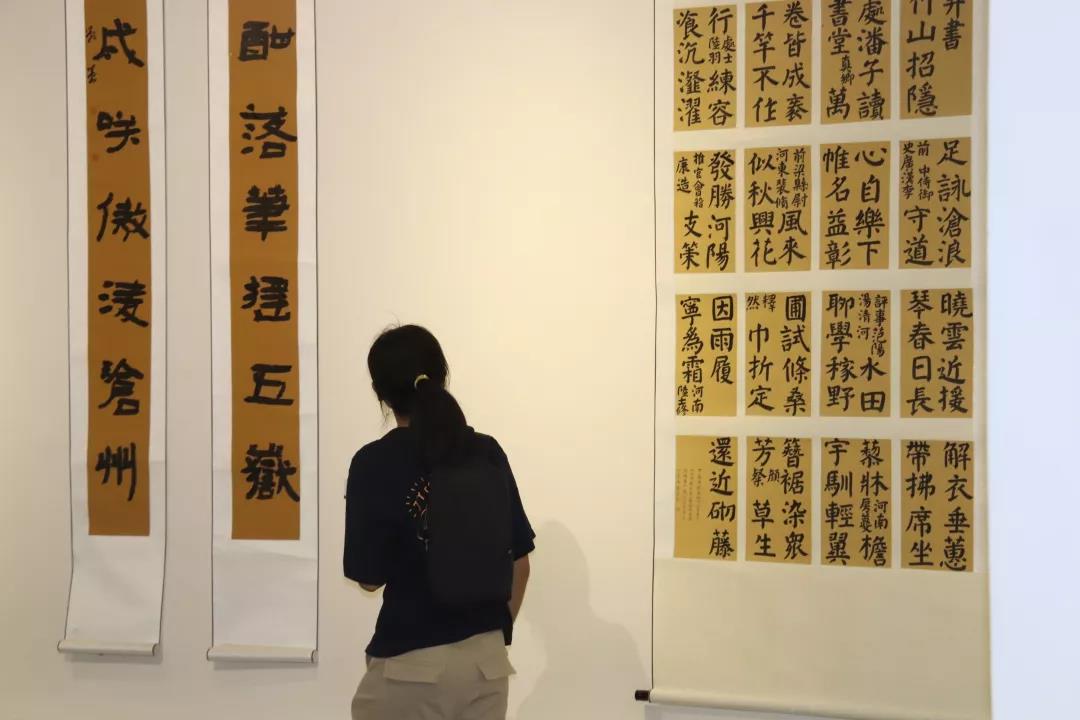 酣落筆摇五嶽
成咲傲凌滄州
并書
竹山招隱
處潘子讀
書堂真卿萬
卷皆成袠
千竿不作
行處士陸羽練容
飡沆瀣濯
足詠滄浪
前中侍御史廣漢李守道
心自樂下
帷名益彰
前梁縣尉河東裴脩風來
似秋興花
發勝河陽
推官會稽康造支策
曉雲近援
琴春日長
評事范陽湯清河水田
聊學稼野
圃試條桑
釋然巾折定
因雨履
寧爲霜河南陸士脩
解衣垂蕙
帶拂席坐
藜牀河南房夔檐
宇馴輕翼
簪裾染衆
芳顏粲草生
還近砌藤